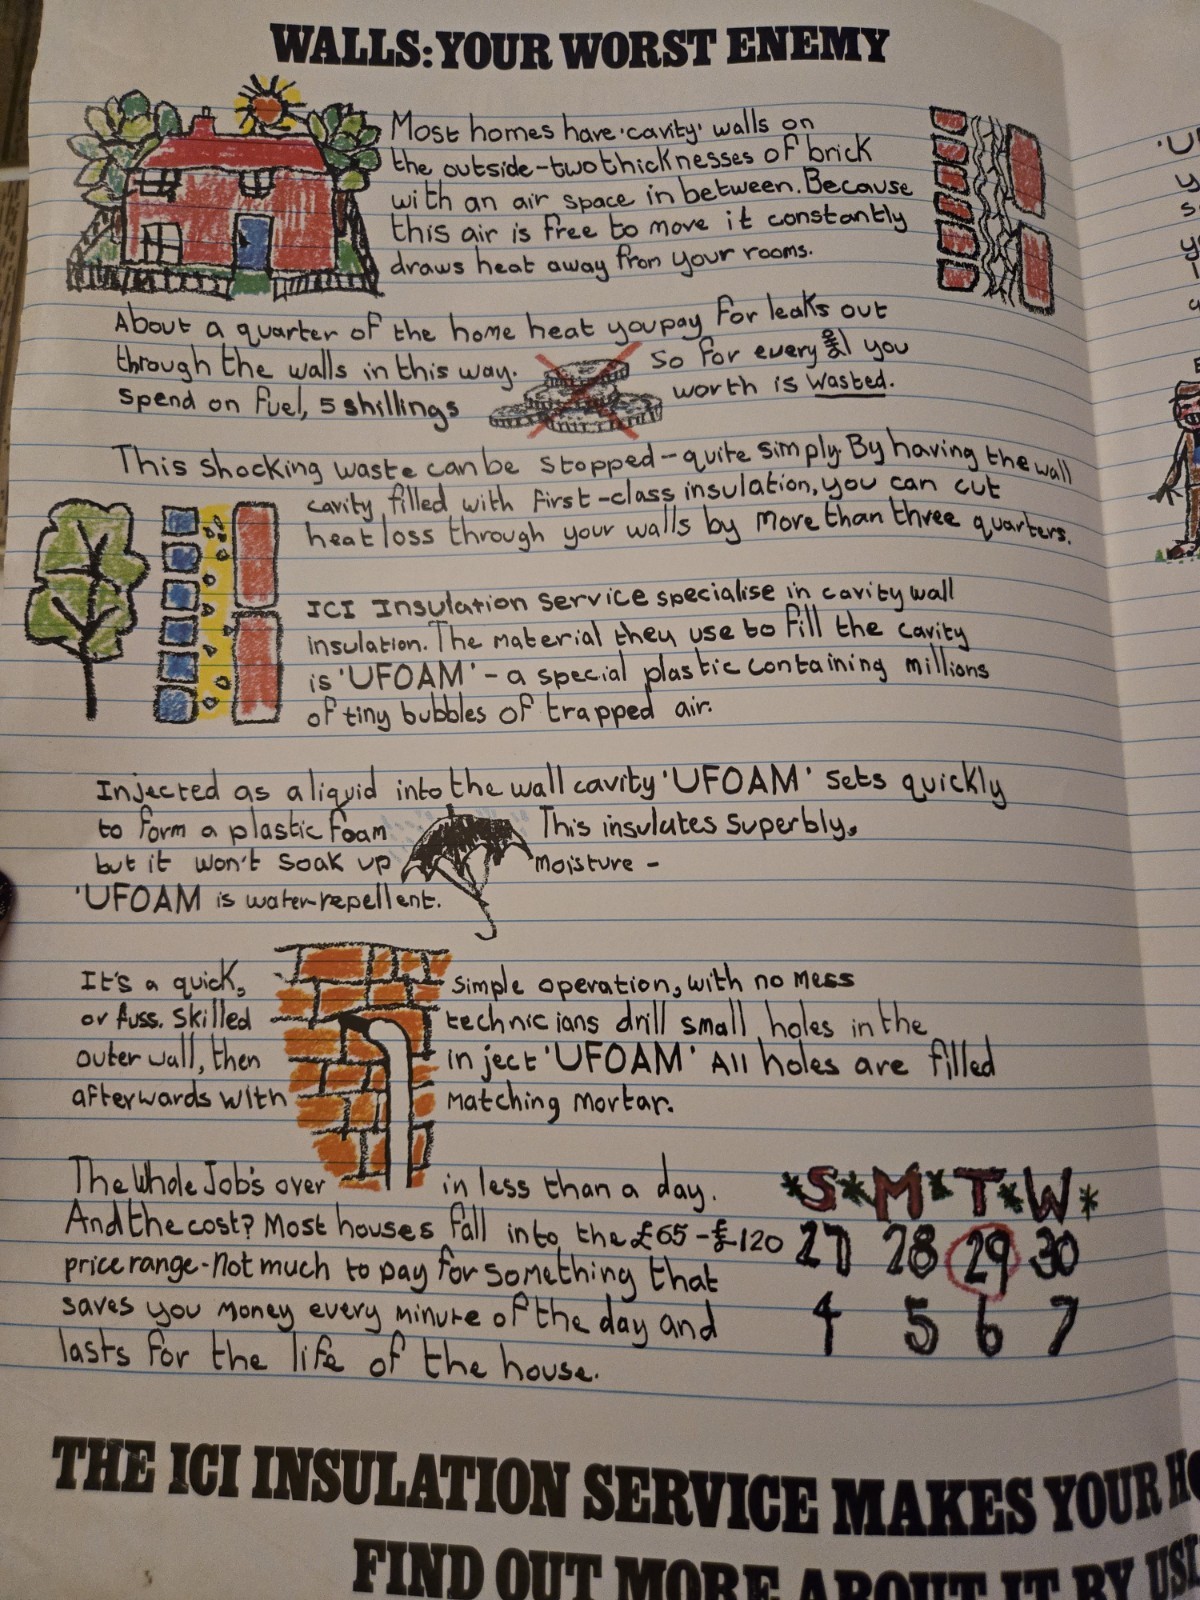 WALLS: YOUR WORST ENEMY
Most homes have 'cavity' walls on
the outside-two thicknesses of brick
with an air space in between. Because
this air is free to move it constantly
draws heat away from your rooms.
About a quarter of the home heat you pay for leaks out
through the walls in this way. So for every you
spend on fuel, 5 shillings worth is wasted.
This shocking waste can be stopped-quite simply. By having the wall
cavity filled with first-class insulation, you can cut
heat loss through your walls by more than three quarters.
ICI Insulation Service specialise in cavity wall
insulation. The material they use to fill the cavity
is 'UFOAM' - a special plastic containing millions
of tiny bubbles of trapped air.
Injected as a liquid into the wall cavity 'UFOAM' sets quickly
to form a plastic foam This insulates superbly,
but it won't soak up moisture -
'UFOAM is water-repellent.
It's a quick, simple operation, with no mess
or fuss. Skilled technicians drill small holes in the
outer wall, then inject 'UFOAM' All holes are filled
afterwards with matching mortar.
The Whole Job's over in less than a day.
And the cost? Most houses fall into the £65-£120
price range-Not much to pay for something that
saves you money every minute of the day and
lasts for the life of the house.
*S*M*T*W*
27 28 29 30
4 5 6 7
THE ICI INSULATION SERVICE MAKES YOUR
FIND OUT MORE ABOUT IT BY